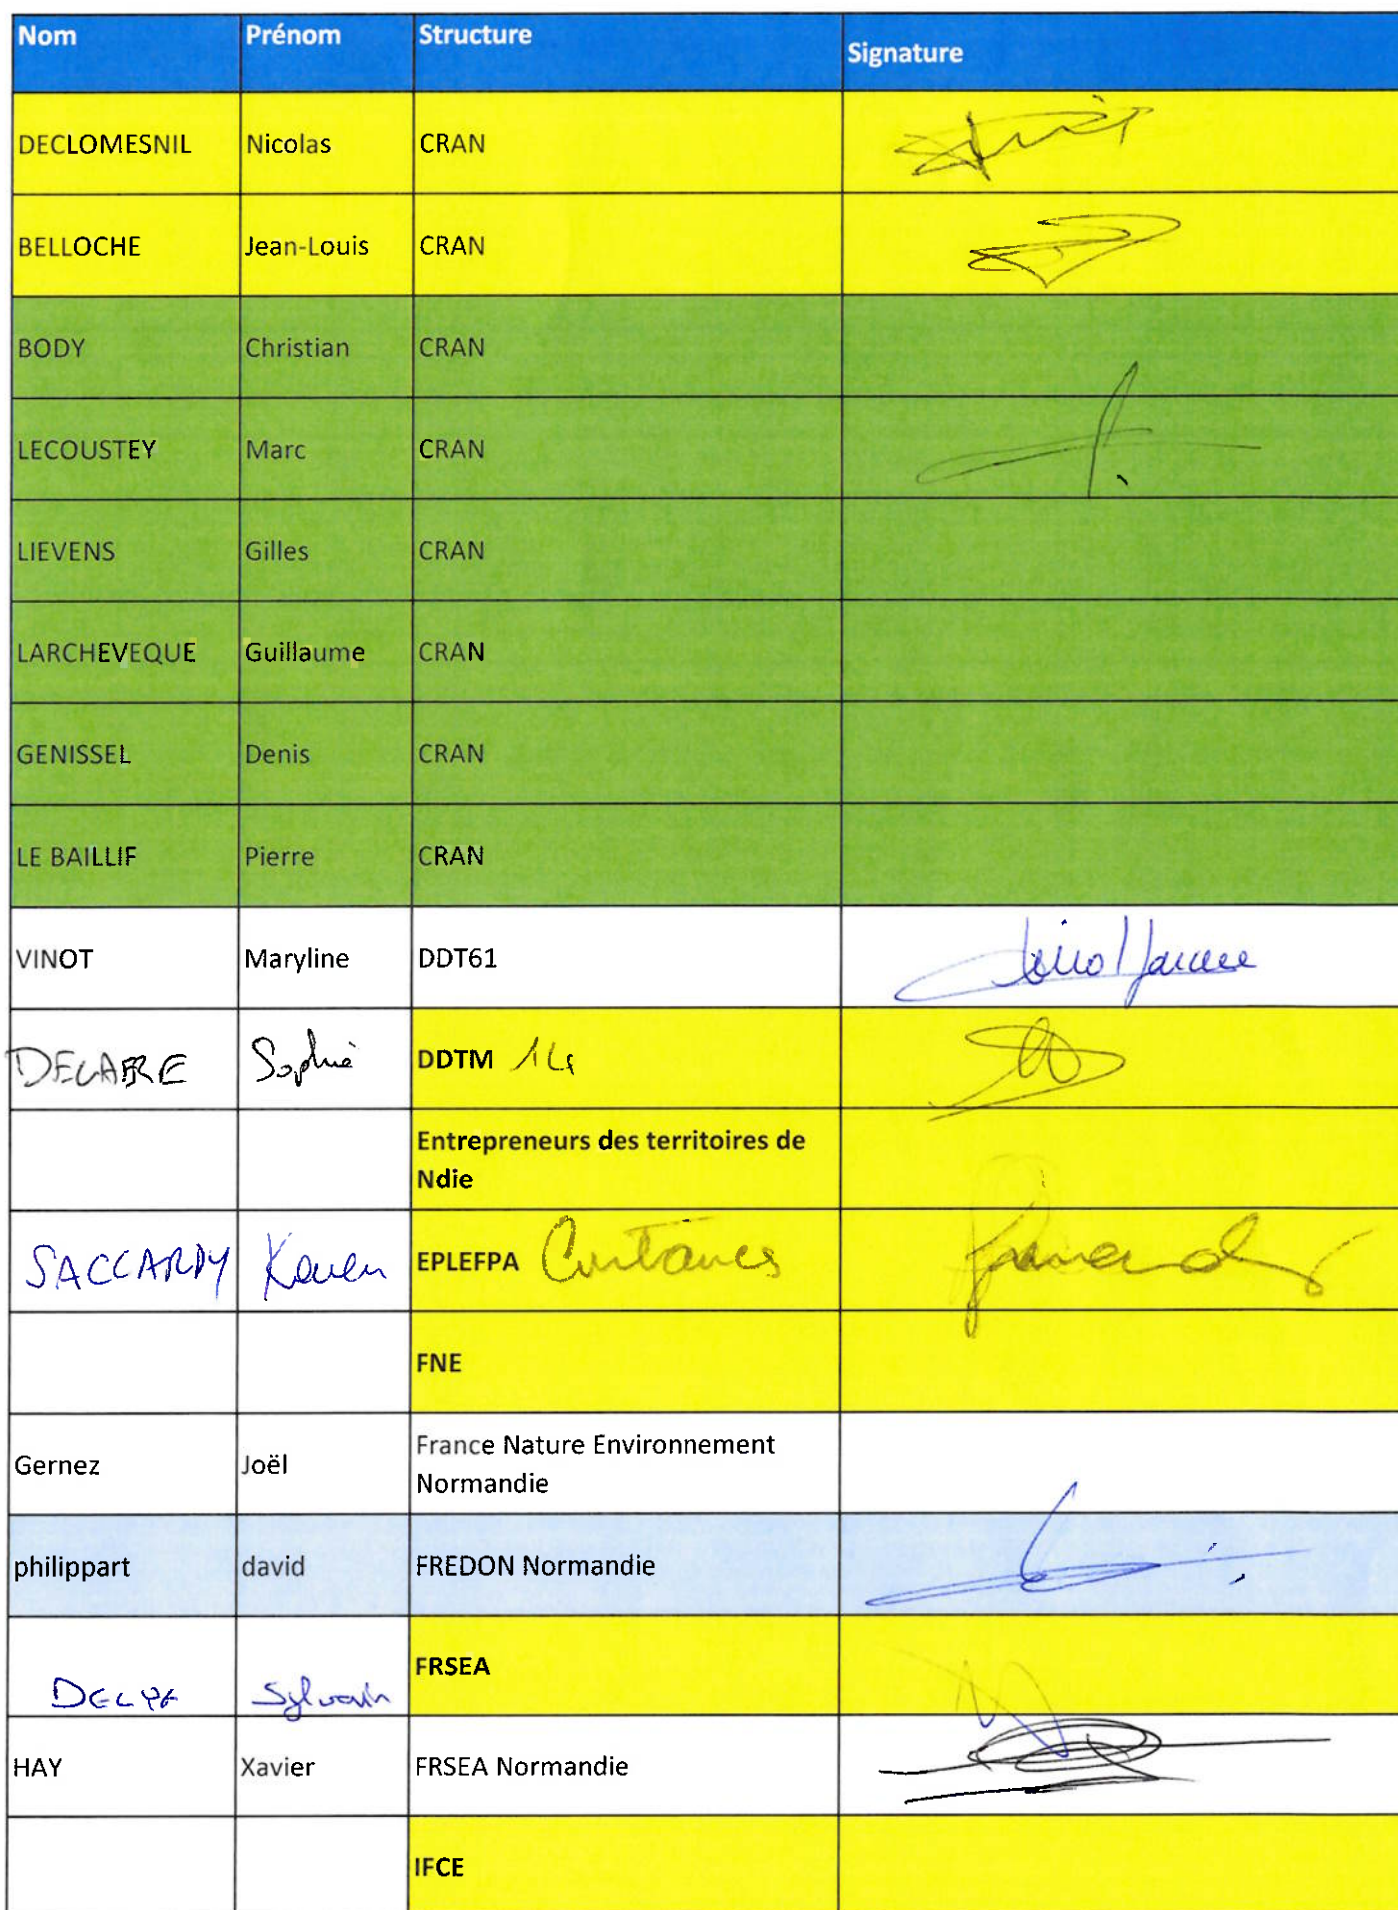 Nom Prénom Structure Signature
DECLOMESNIL Nicolas CRAN
BELLOCHE Jean-Louis CRAN
BODY Christian CRAN
LECOUSTEY Marc CRAN
LIEVENS Gilles CRAN
LARCHEVEQUE Guillaume CRAN
GENISSEL Denis CRAN
LE BAILLIF Pierre CRAN
VINOT Maryline DDT61
Sophie DDTM 14
Entrepreneurs des territoires de
Ndie
SACCARDY Karen EPLEFPA Coutances
FNE
Gernez Joël France Nature Environnement
Normandie
philippart david FREDON Normandie
FRSEA
Sylvain
HAY Xavier FRSEA Normandie
IFCE